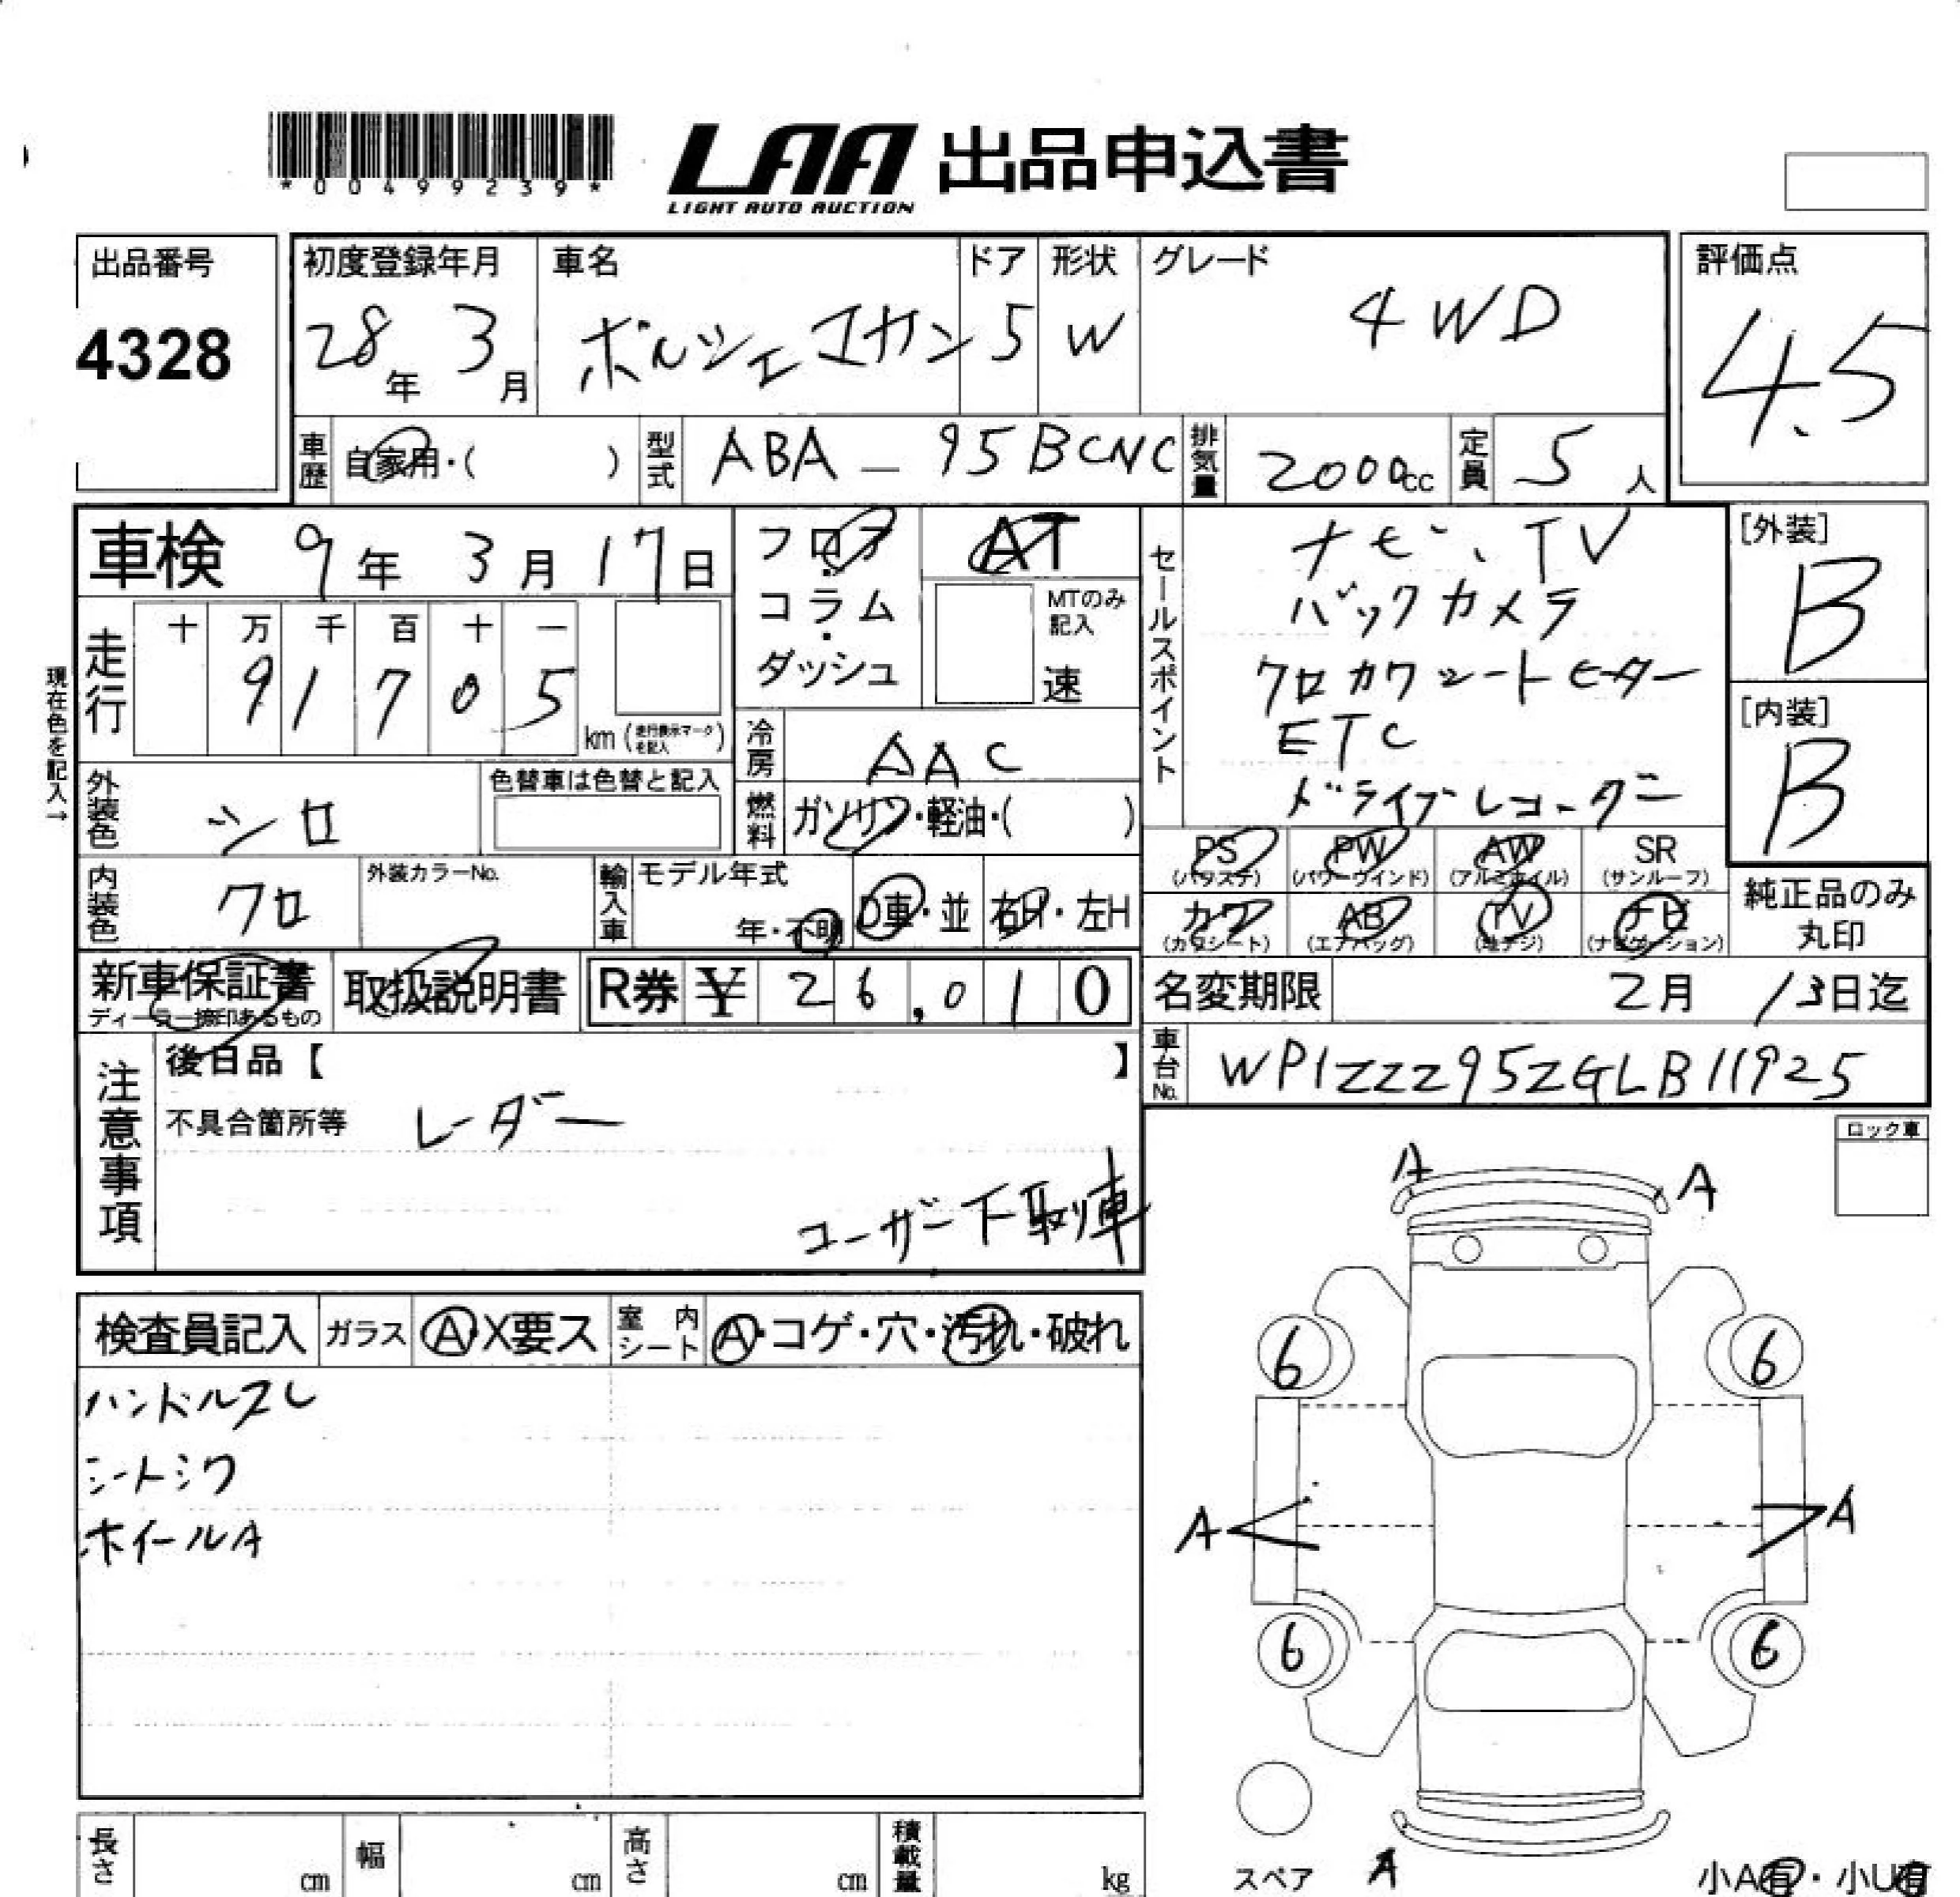 *00499239*
LAA 出品申込書
LIGHT AUTO AUCTION
出品番号
4328
初度登録年月
28年 3月
車名
ポルシェ マカン
ドア
5
形状
W
グレード
4WD
評価点
4.5
車歴 自家用・( )
型式 ABA - 95BCNC
排気量 2000cc
定員 5人
車検 9年 3月 17日
フロア・コラム・ダッシュ
AT
MTのみ記入
速
セールスポイント
ナビ、TV
バックカメラ
クロカワシートヒーター
ETC
ドライブレコーダー
[外装]
B
[内装]
B
現在色を記入→
走行
十 万 千 百 十 一
9 1 7 0 5
km (走行表示マークを記入)
冷房 AAC
外装色 シロ
色替車は色替と記入
燃料 ガソリン・軽油・( )
PS (パワステ)
PW (パワーウインド)
AW (アルミホイル)
SR (サンルーフ)
カワ (カワシート)
AB (エアバッグ)
TV (地デジ)
ナビ (ナビゲーション)
純正品のみ丸印
内装色 クロ
外装カラーNo.
輸入車
モデル年式
年・不明
D車・並
右H・左H
新車保証書
ディーラー捺印あるもの
取扱説明書
R券 ¥ 26,010
名変期限 2月 13日迄
車台No. WP1ZZZ95ZGLB11925
注意事項
後日品【 】
不具合箇所等 レーダー
ユーザー下取り車
ロック車
A A
検査員記入
ガラス A・X要ス
室内シート A・コゲ・穴・汚れ・破れ
ハンドルスレ
シートシワ
ホイールA
6 6
A A
6 6
スペア
A
小A有・小U有
長さ cm
幅 cm
高さ cm
積載量 kg